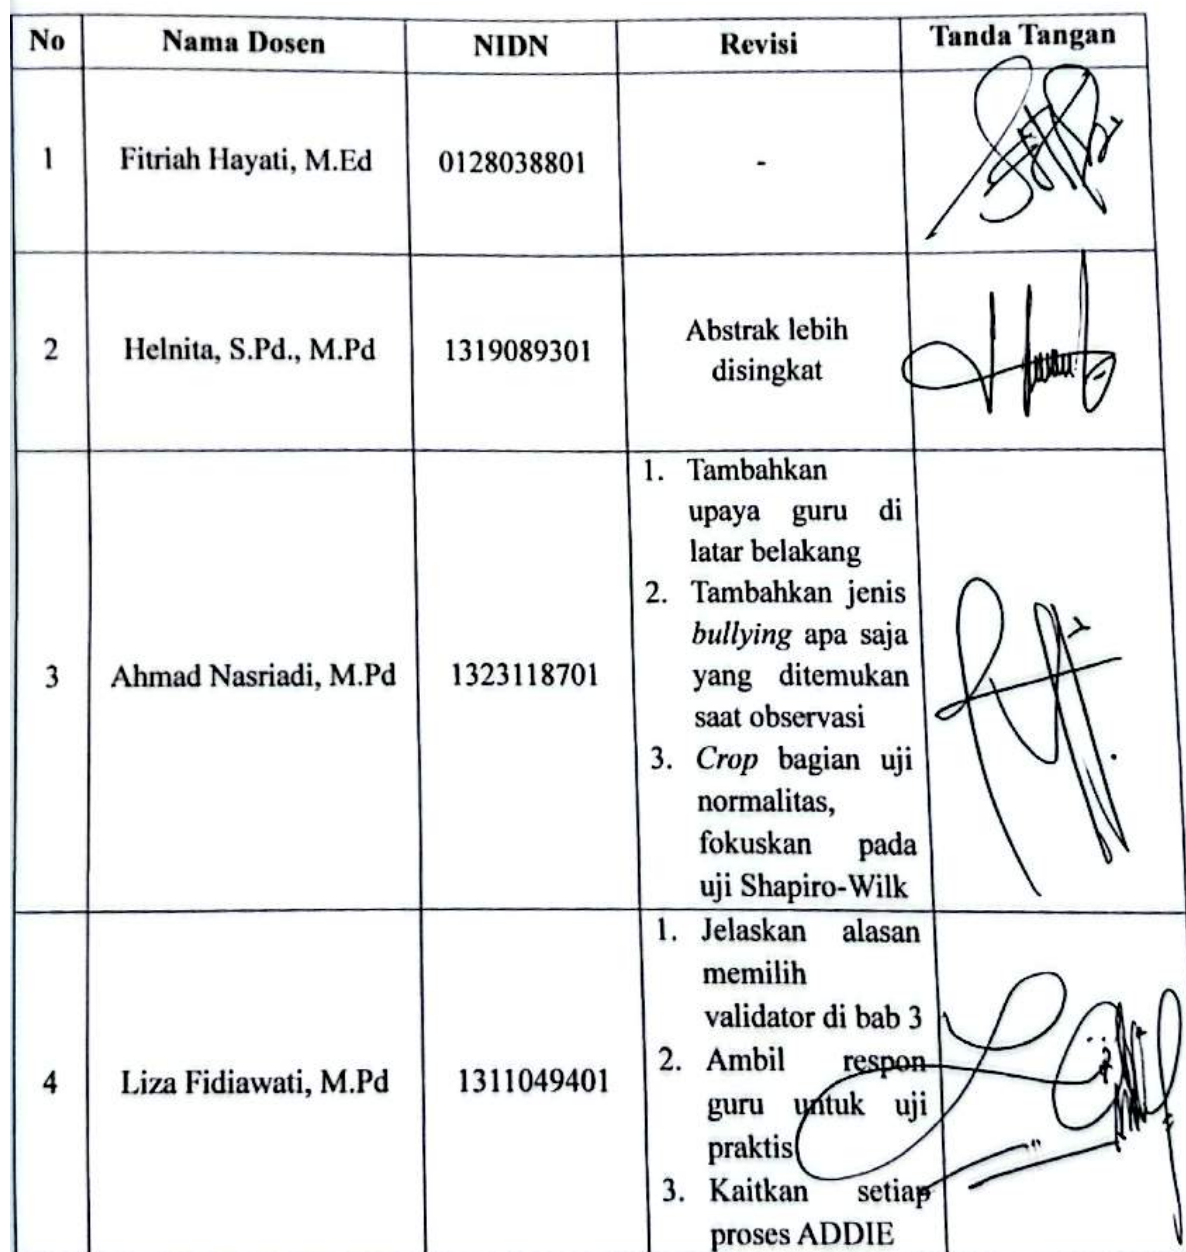 No Nama Dosen NIDN Revisi Tanda Tangan
1 Fitriah Hayati, M.Ed 0128038801 -
2 Helnita, S.Pd., M.Pd 1319089301 Abstrak lebih
disingkat
3 Ahmad Nasriadi, M.Pd 1323118701
1. Tambahkan
upaya guru di
latar belakang
2. Tambahkan jenis
bullying apa saja
yang ditemukan
saat observasi
3. Crop bagian uji
normalitas,
fokuskan pada
uji Shapiro-Wilk
4 Liza Fidiawati, M.Pd 1311049401
1. Jelaskan alasan
memilih
validator di bab 3
2. Ambil respon
guru untuk uji
praktis
3. Kaitkan setiap
proses ADDIE